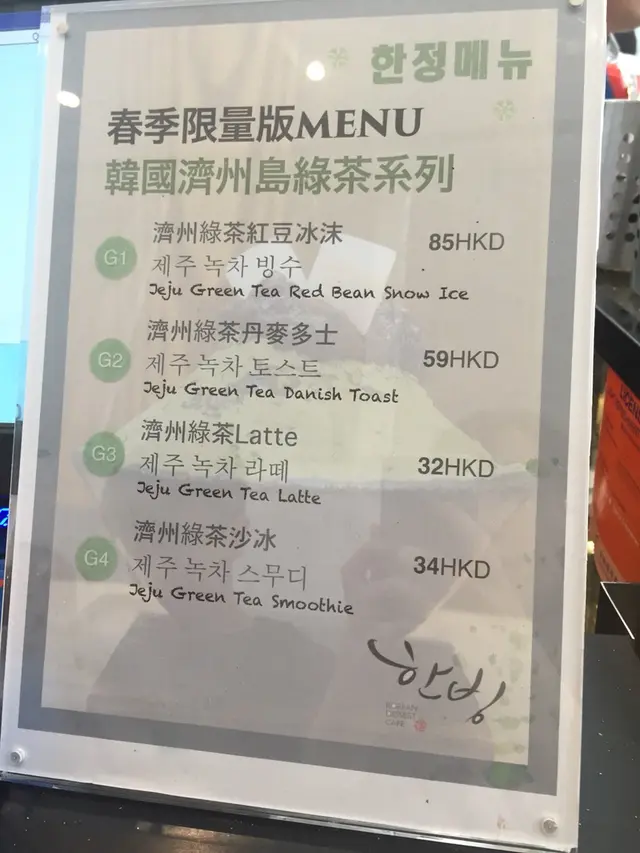 한정메뉴
春季限量版MENU
韓國濟州島綠茶系列
G1
濟州綠茶紅豆冰沫
85HKD
제주 녹차 빙수
Jeju Green Tea Red Bean Snow Ice
G2
濟州綠茶丹麥多士
59HKD
제주 녹차 토스트
Jeju Green Tea Danish Toast
G3
濟州綠茶Latte
32HKD
제주 녹차 라떼
Jeju Green Tea Latte
G4
濟州綠茶沙冰
34HKD
제주 녹차 스무디
Jeju Green Tea Smoothie
한빙
KOREAN
DESSERT
CAFE